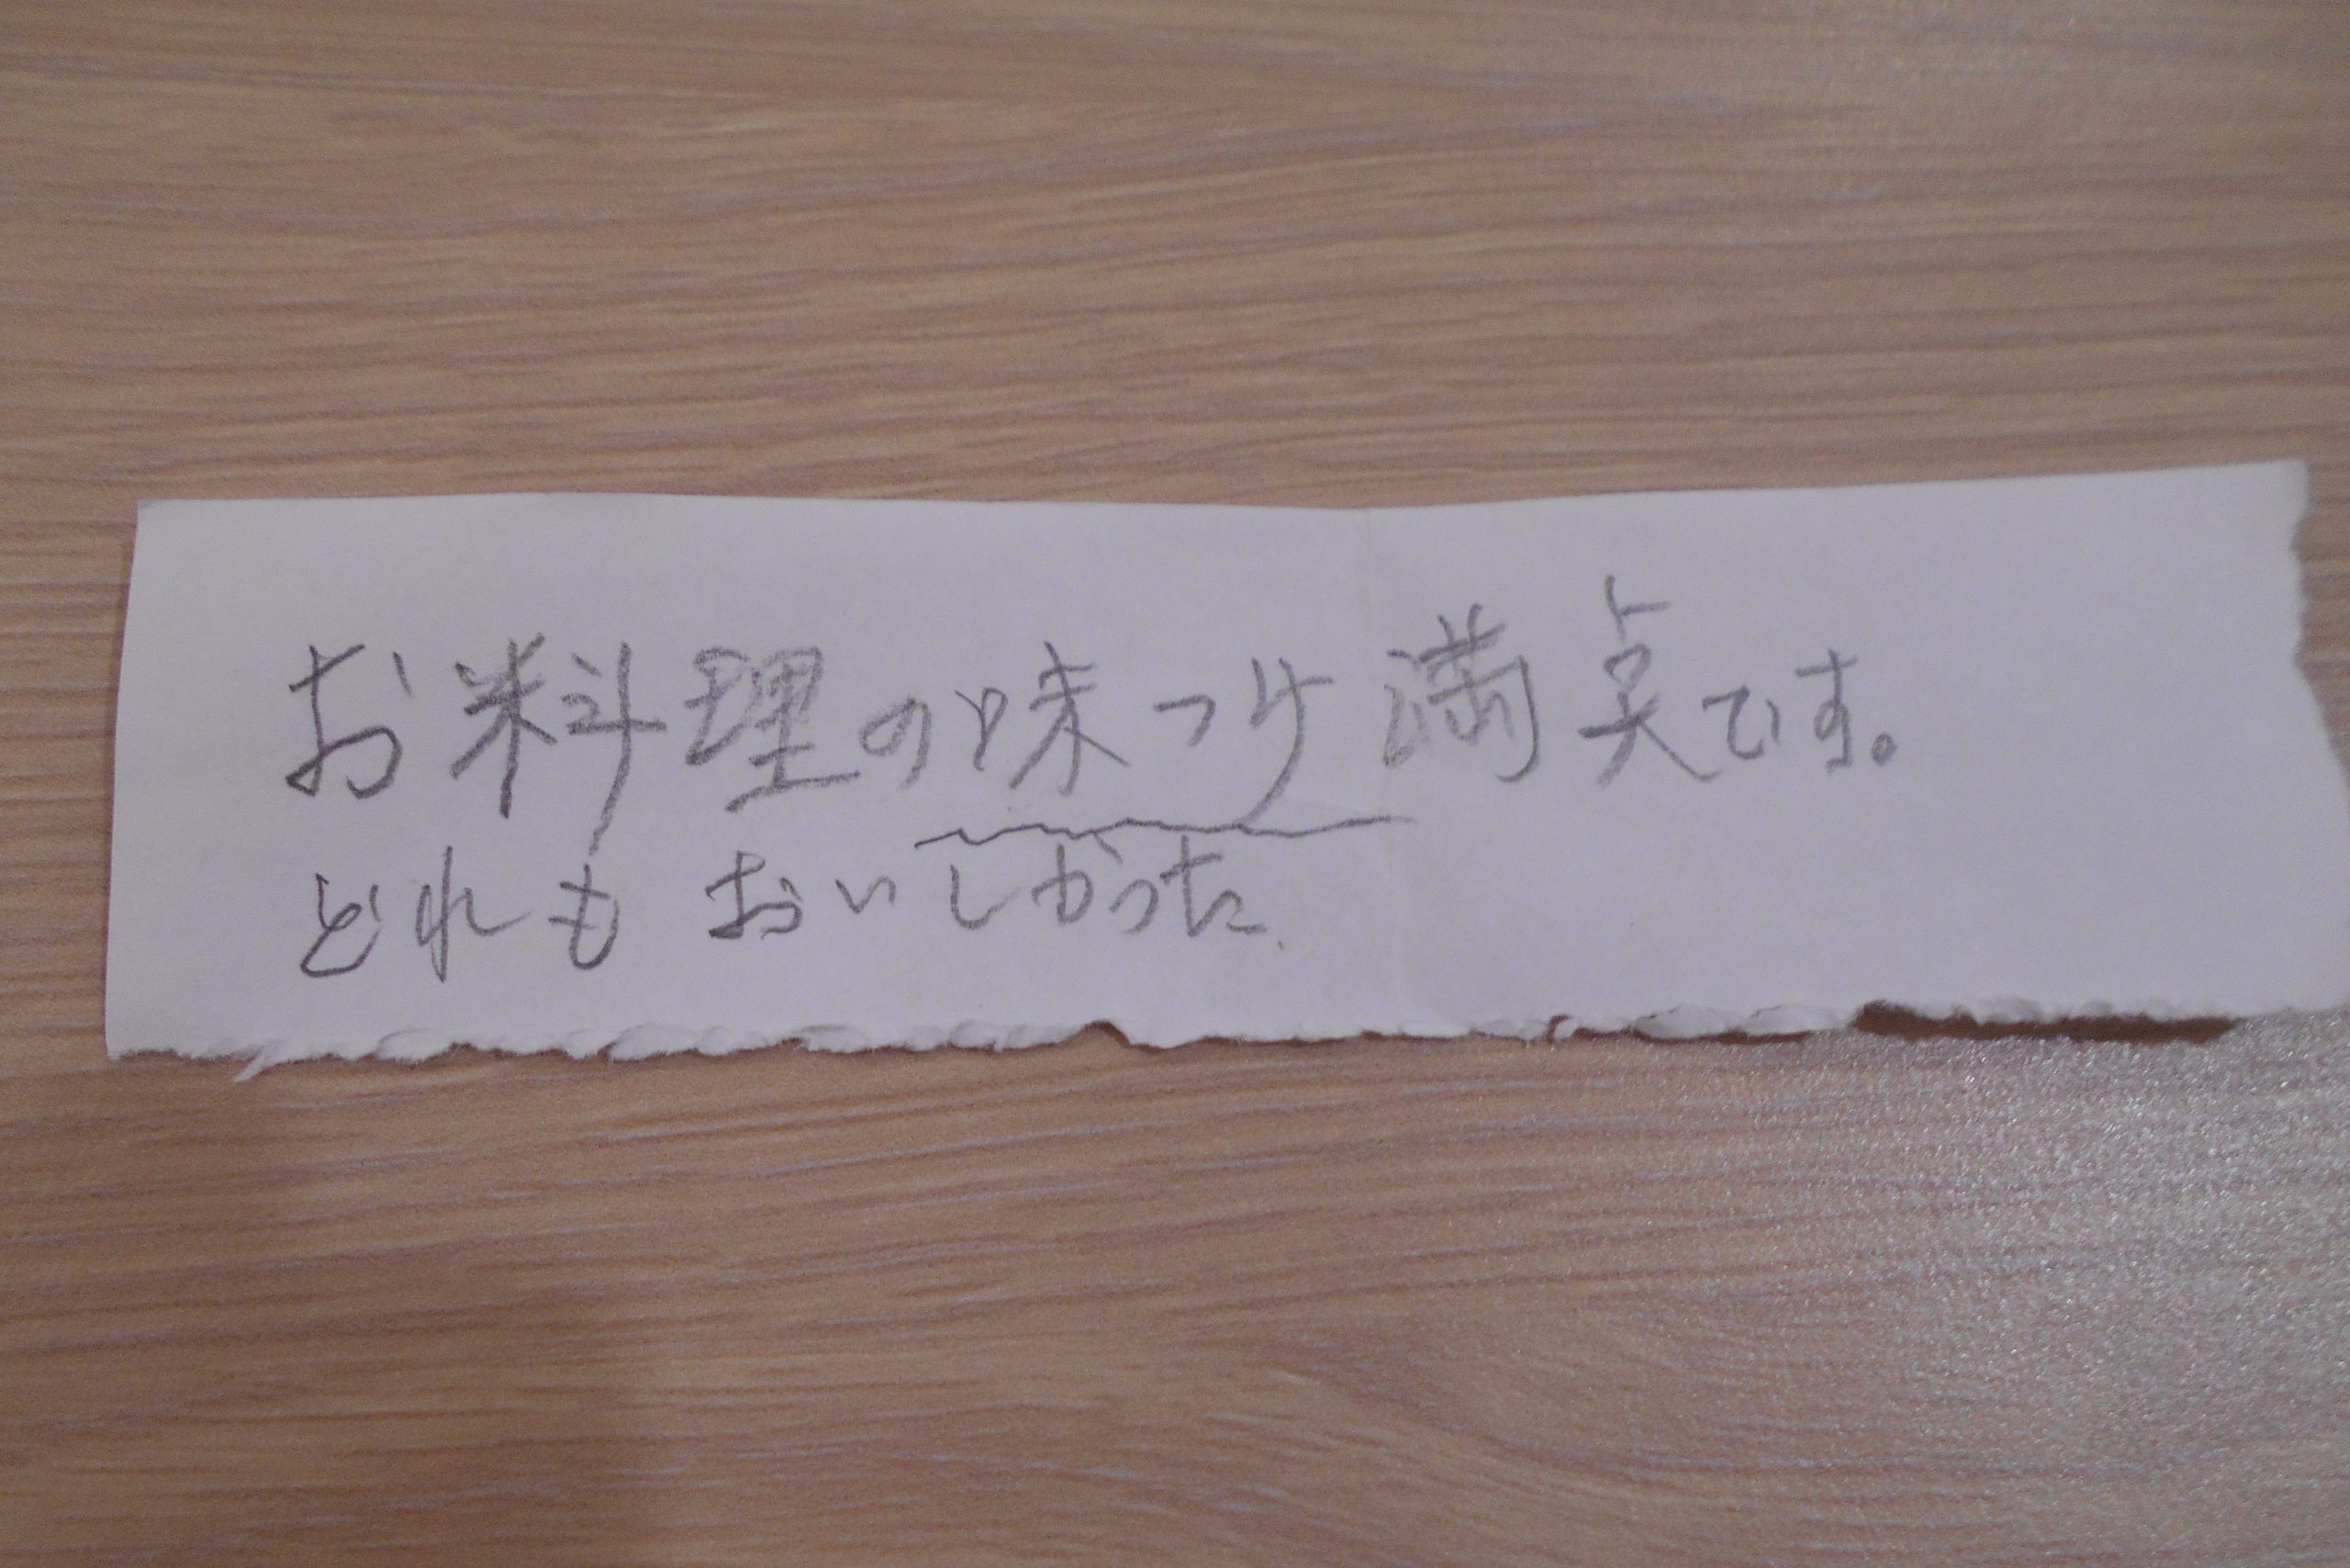 お料理の味つけ満点です。
どれもおいしかった.